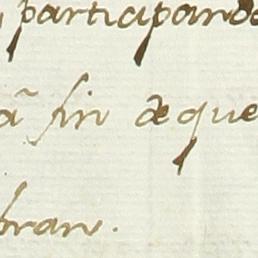 participando
à fin de que
bran.